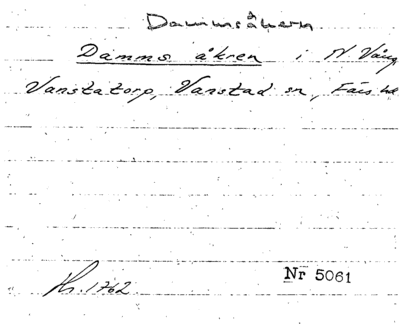 Dammsåkern
Damms åkren i N Vång
Vanstatorp, Vanstad sn, Färs hd
Hs. 1762
Nr 5061